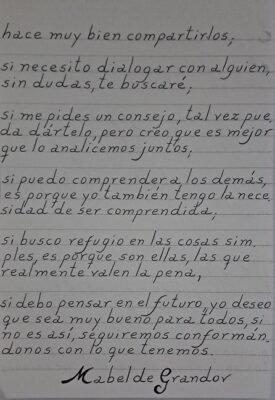 hace muy bien compartirlos;
si necesito dialogar con alguien,
sin dudas, te buscaré;
si me pides un consejo, tal vez pue
da dártelo, pero creo, que es mejor
que lo analicemos juntos;
si puedo comprender a los demás,
es porque yo también tengo la nece
sidad de ser comprendida;
si busco refugio en las cosas sim
ples, es porque, son ellas, las que
realmente valen la pena,
si debo pensar en el futuro, yo deseo
que sea muy bueno para todos, si
no es así, seguiremos conformán
donos con lo que tenemos.
Mabel de Grandov